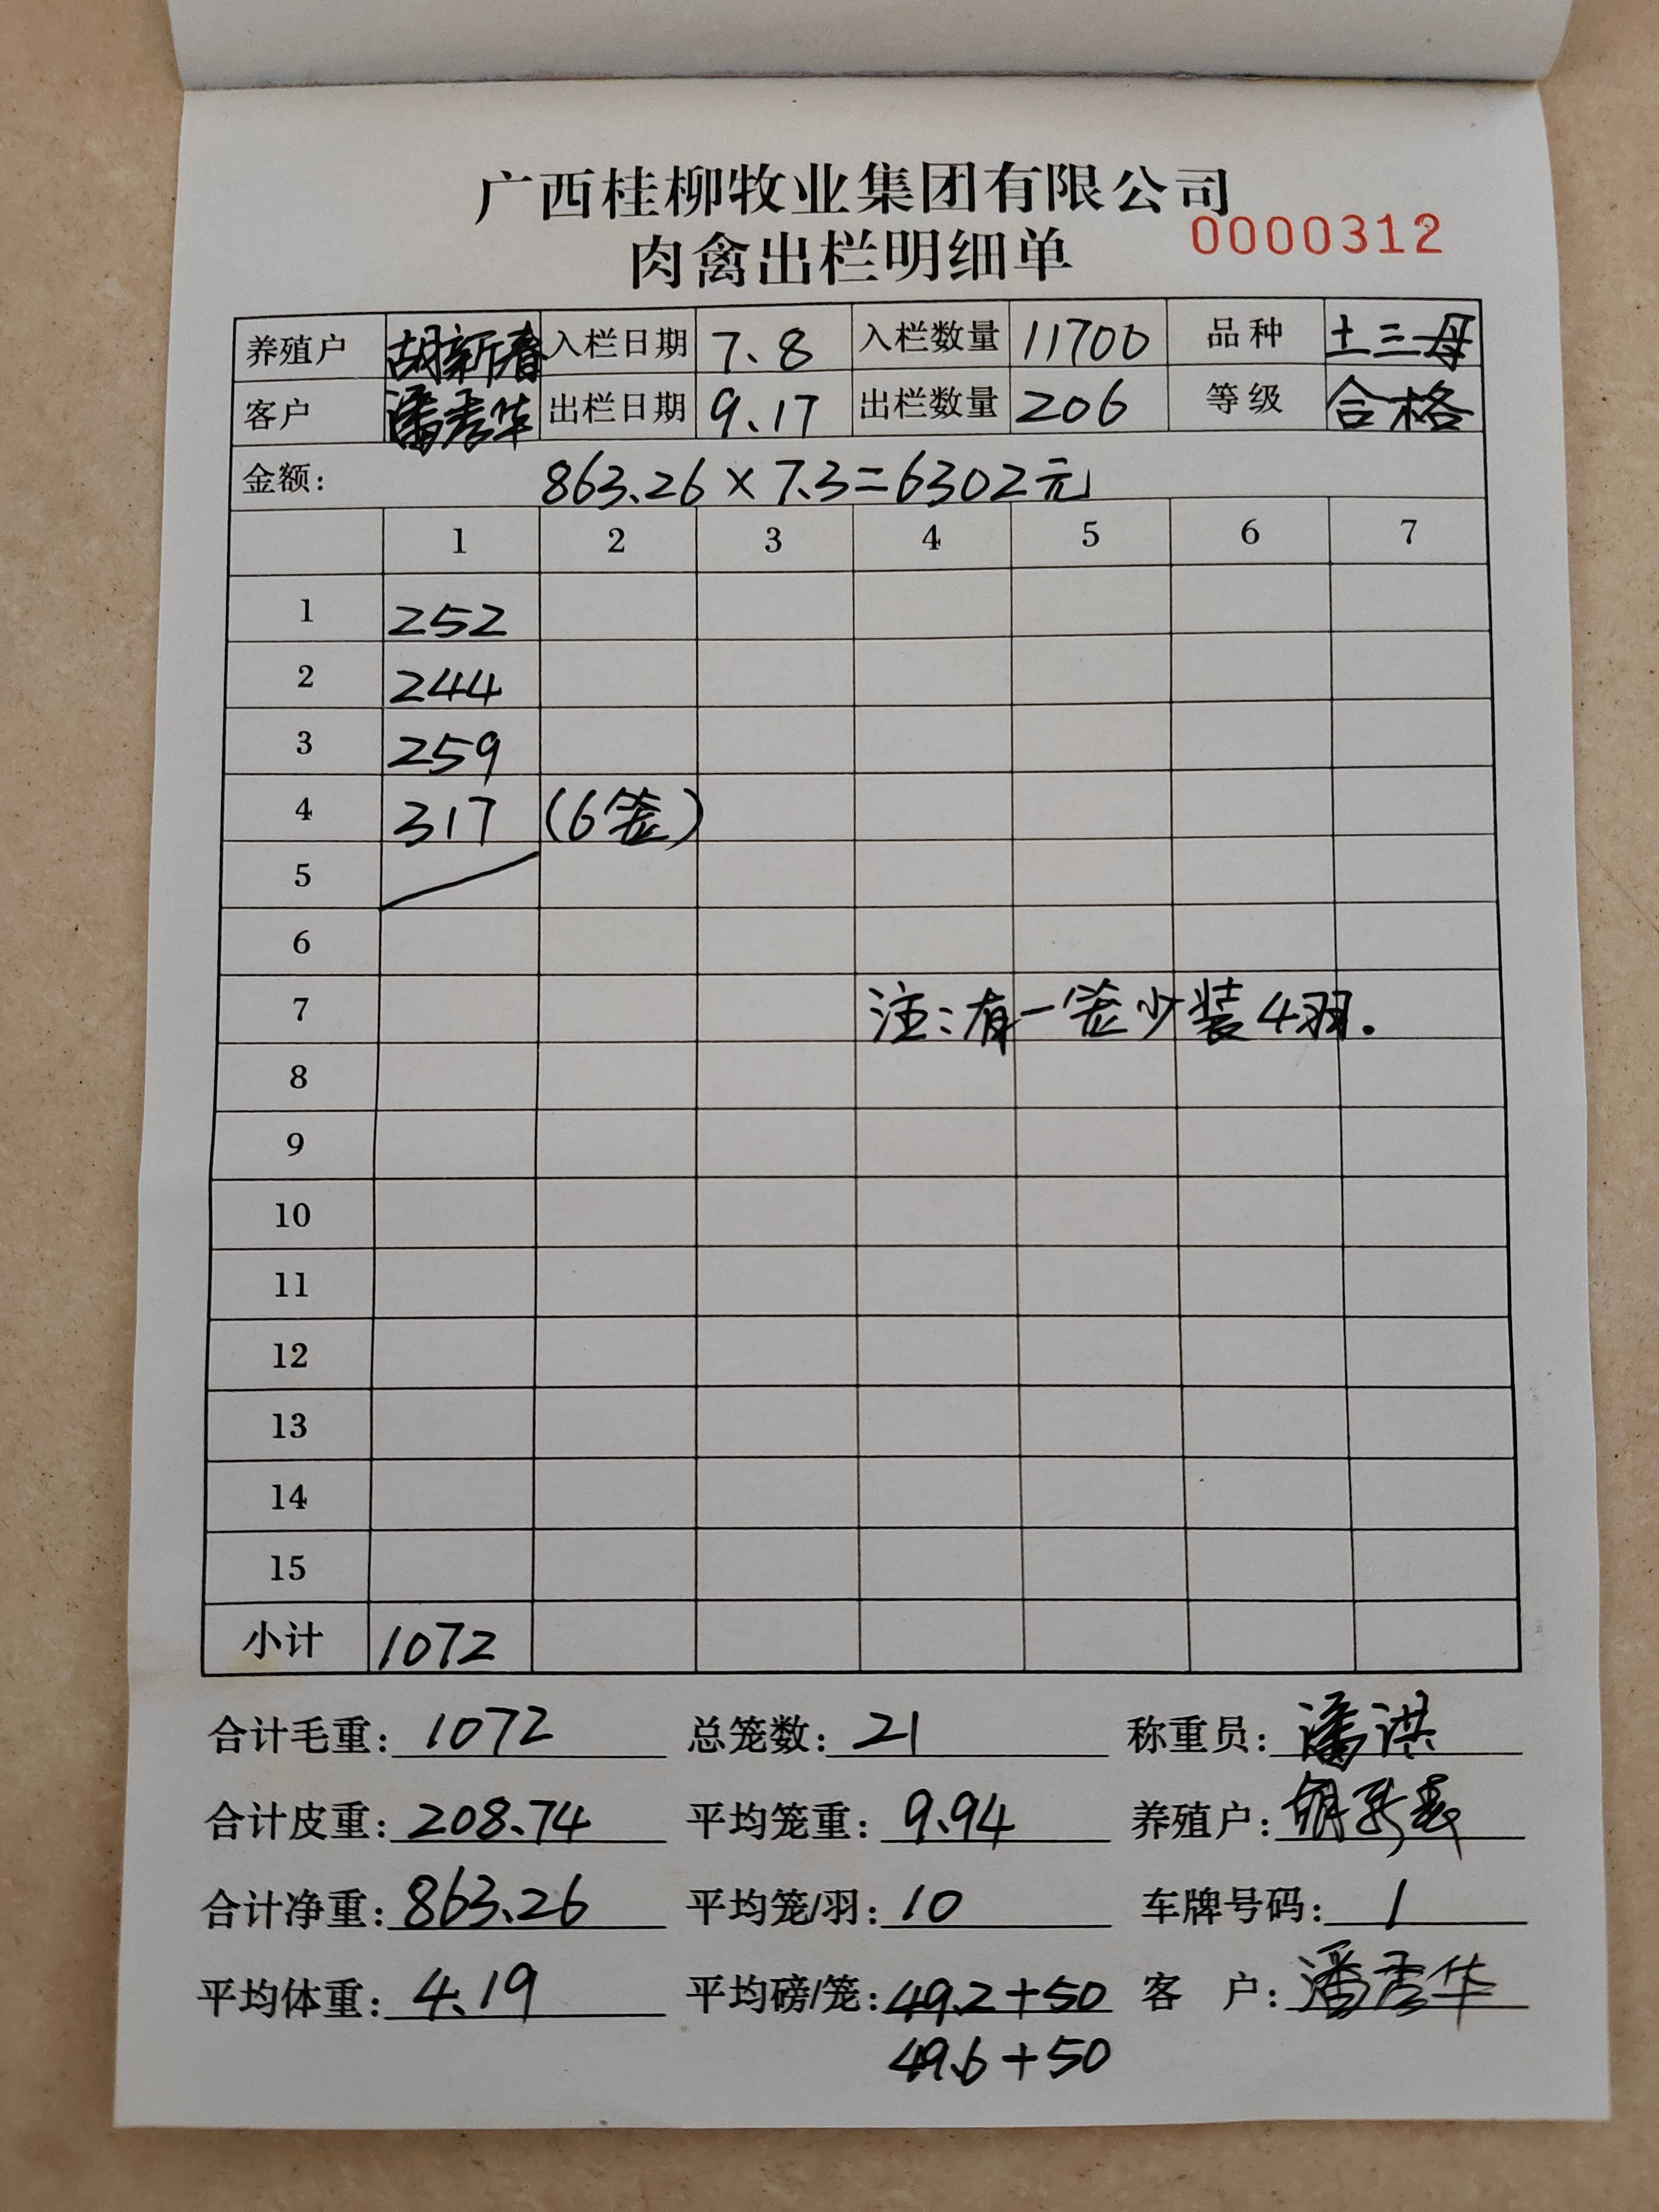 广西桂柳牧业集团有限公司
肉禽出栏明细单 0000312
养殖户 胡新春 入栏日期 7.8 入栏数量 11700 品种 土三母
客户 潘秀华 出栏日期 9.17 出栏数量 206 等级 合格
金额: 863.26×7.3=6302元
1 2 3 4 5 6 7
1 252
2 244
3 259
4 317 (6笼)
5
6
7 注:有一笼少装4羽.
8
9
10
11
12
13
14
15
小计 1072
合计毛重: 1072 总笼数: 21 称重员: 潘洪
合计皮重: 208.74 平均笼重: 9.94 养殖户: 胡新春
合计净重: 863.26 平均笼/羽: 10 车牌号码: 1
平均体重: 4.19 平均磅/笼: 49.2+50 客户: 潘秀华
49.6+50